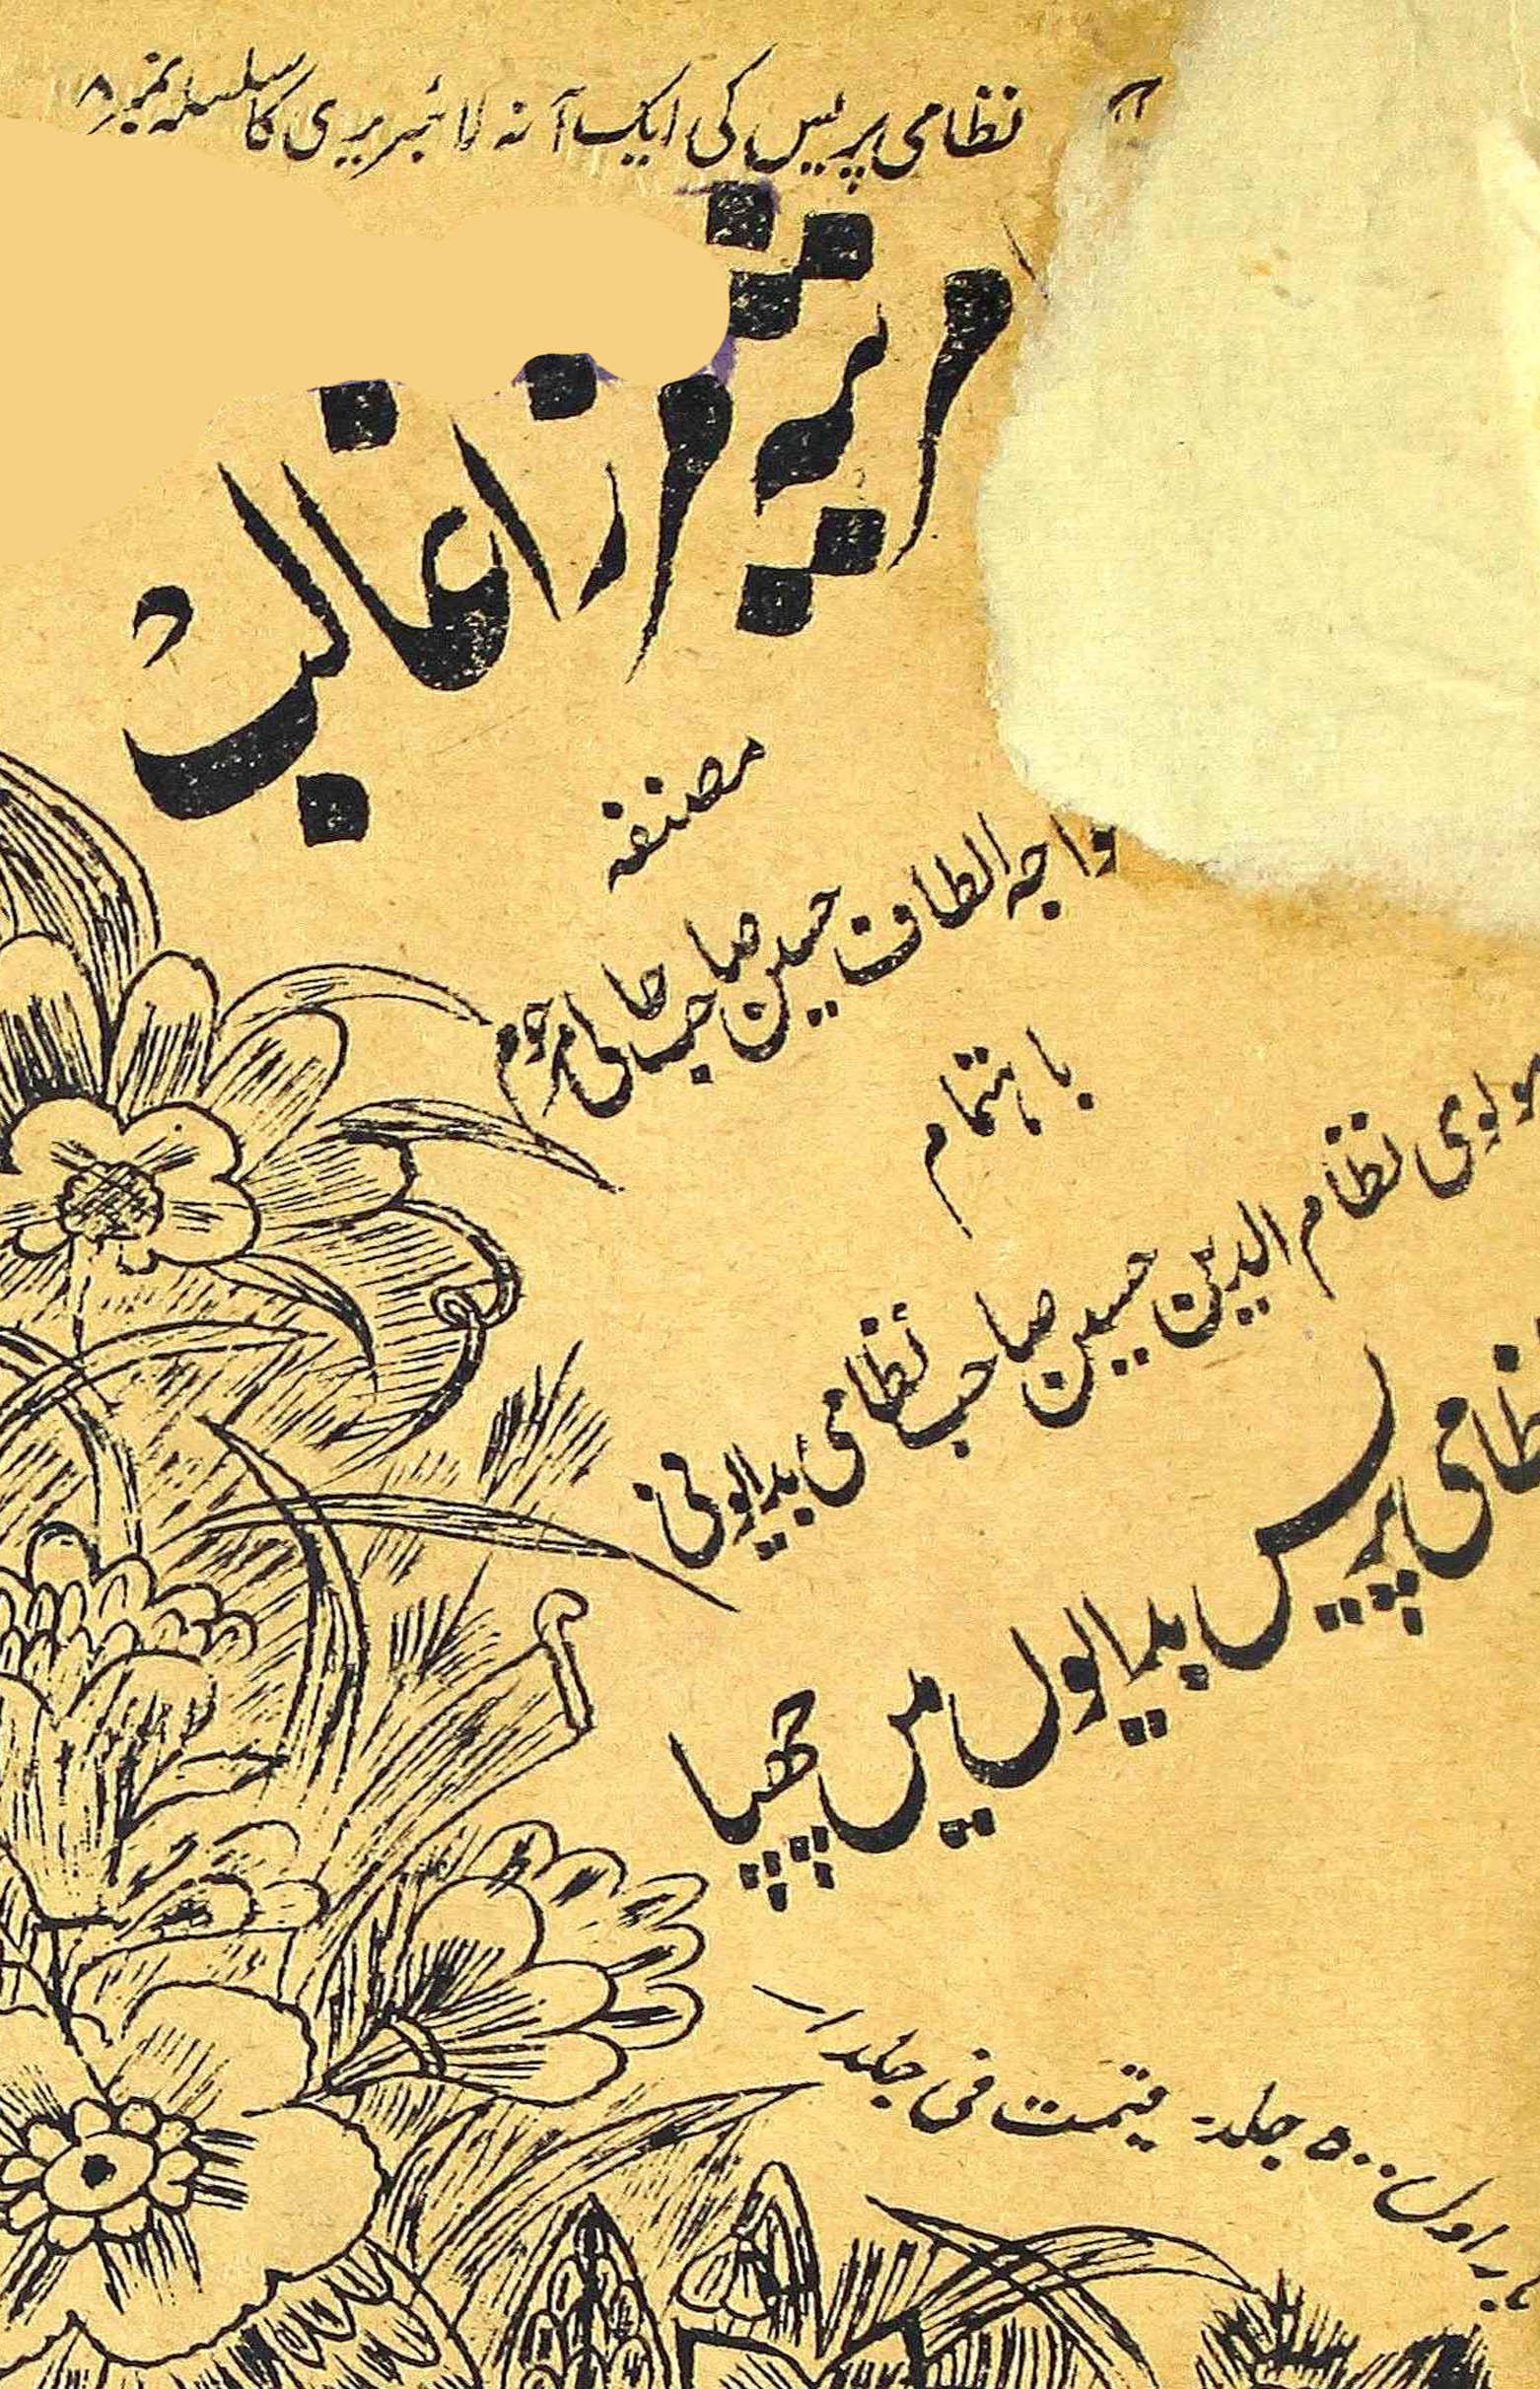 نظامی پریس کی ایک آنہ لائبریری کا سلسلہ نمبر ۸
مرثیہ مرزا غالب
مصنفہ
واجہ الطاف حسین صاحب حالی مرحوم
باہتمام
مولوی نظام الدین حسین صاحب نظامی بدایونی
ظامی پریس بدایوں میں چھپا
بار اول ۵۰۰ جلد - قیمت فی جلد ۱ر